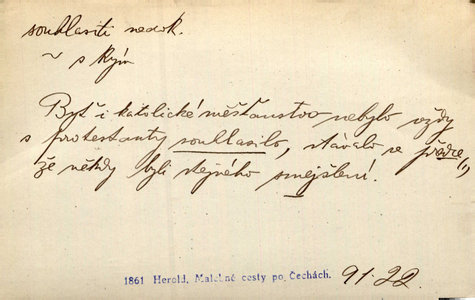 souhlasiti nedok.
~ s kým
Byť i katolické měšťanstvo nebylo vždy
s protestanty souhlasilo, stávalo se přece,
že někdy byli stejného smejšlení.
1861 Herold, Malebné cesty po Čechách. 91·22